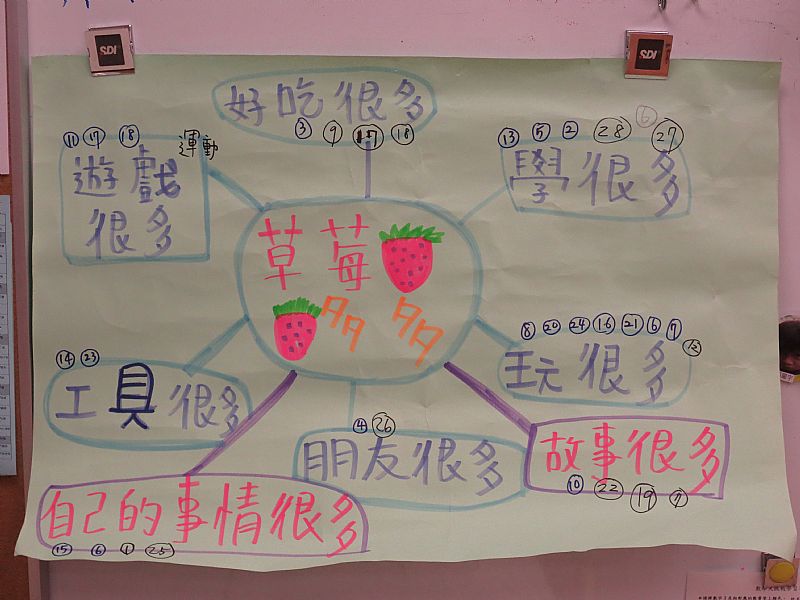 SDI
SDI
好吃很多
③ ⑨ 17 ⑱
⑪ ⑰ ⑱
運動
遊戲
很多
⑬ ⑤ ② 28 ⑥ 27
學很多
草莓
多多
⑧ ⑳ 24 16 21 ⑥ ⑦
玩很多
⑭ 23
工具很多
④ 26
朋友很多
故事很多
⑩ 22 ⑲ ⑦
自己的事情很多
⑮ ⑥ ① 25